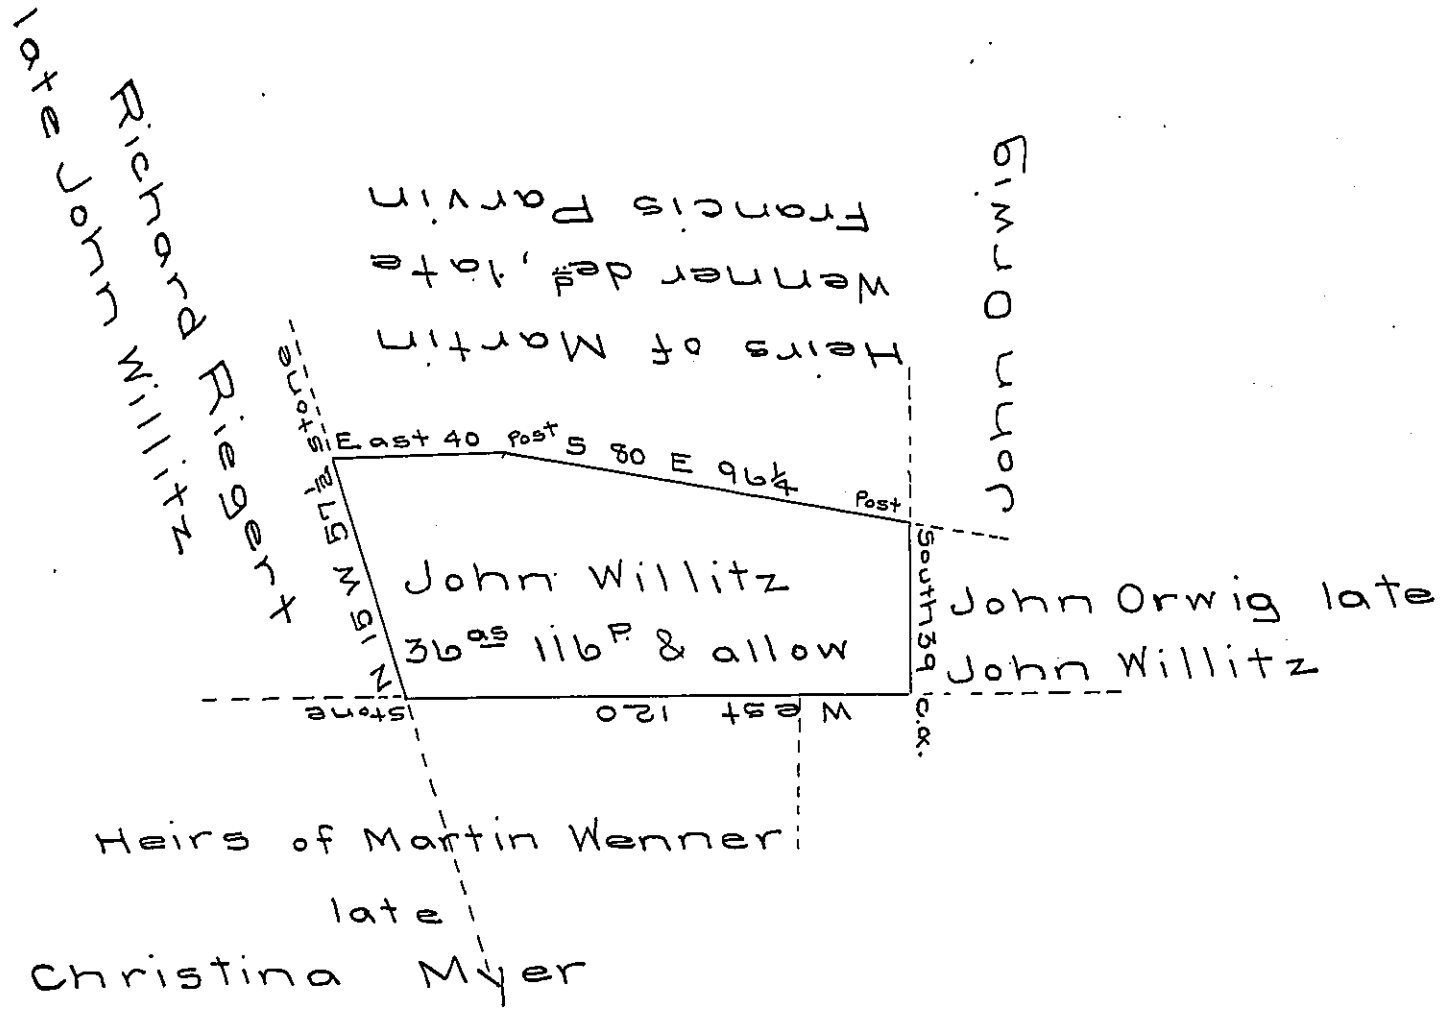 late John Willitz
Richard Riegert
Heirs of Martin
Wenner des<sup>d</sup>, late
Francis Parvin
John Orwig
Stone
East 40
Post
S 80 E 96¼
Post
South 39
N 15 W 57½
John Willitz
36<sup>as</sup> 116<sup>P.</sup> & allow
John Orwig late
John Willitz
Stone
West 120
c.a.
Heirs of Martin Wenner
late
Christina Myer